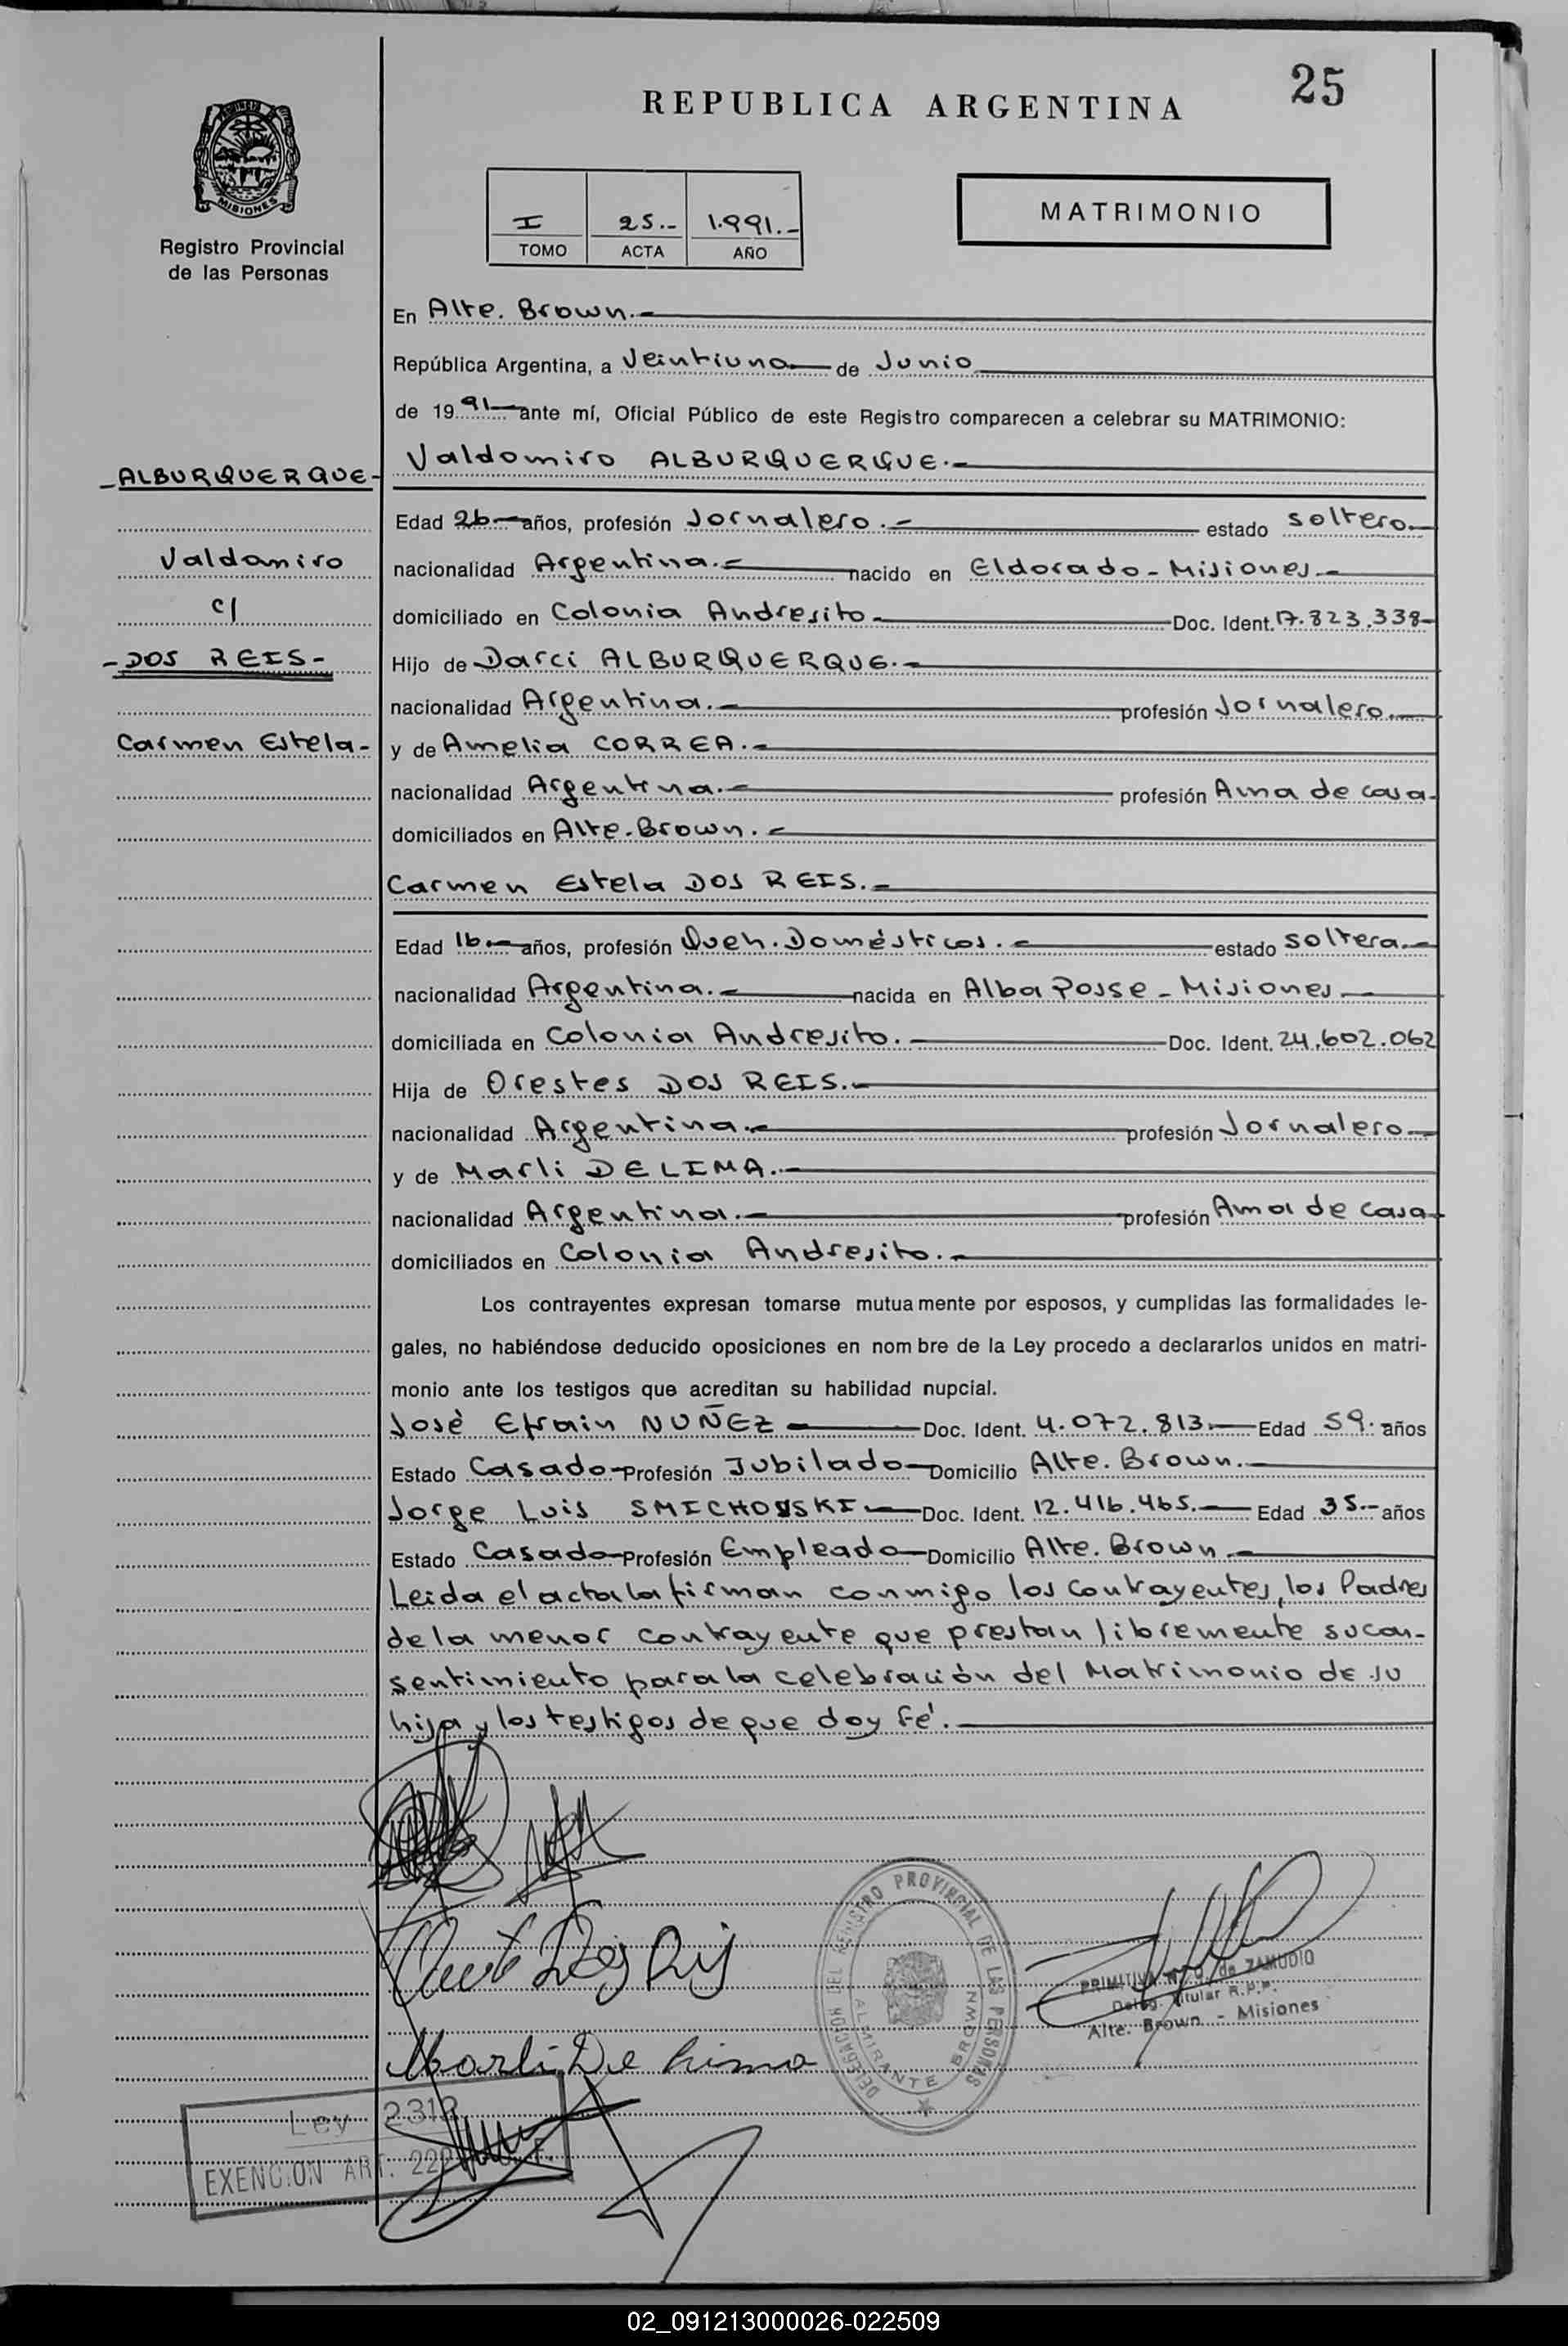 25
REPUBLICA ARGENTINA
MISIONES
Registro Provincial
de las Personas
I 25.- 1.991.-
TOMO ACTA AÑO
MATRIMONIO
En Alte. Brown.-
República Argentina, a Veintiuno de Junio
de 1991 ante mí, Oficial Público de este Registro comparecen a celebrar su MATRIMONIO:
Valdomiro ALBURQUERQUE.-
-ALBURQUERQUE-
Edad 26.- años, profesión Jornalero.- estado soltero.-
Valdomiro
nacionalidad Argentina.- nacido en Eldorado - Misiones.-
c/
domiciliado en Colonia Andresito.- Doc. Ident. 17.823.338-
-DOS REIS-
Hijo de Darci ALBURQUERQUE.-
nacionalidad Argentina.- profesión Jornalero.-
Carmen Estela-
y de Amelia CORREA.-
nacionalidad Argentina.- profesión Ama de casa-
domiciliados en Alte. Brown.-
Carmen Estela DOS REIS.-
Edad 16.- años, profesión Queh. Domésticos.- estado soltera.-
nacionalidad Argentina.- nacida en Alba Posse - Misiones.-
domiciliada en Colonia Andresito.- Doc. Ident. 24.602.062
Hija de Orestes DOS REIS.-
nacionalidad Argentina.- profesión Jornalero-
y de Marli DE LIMA.-
nacionalidad Argentina.- profesión Ama de casa-
domiciliados en Colonia Andresito.-
Los contrayentes expresan tomarse mutuamente por esposos, y cumplidas las formalidades le-
gales, no habiéndose deducido oposiciones en nombre de la Ley procedo a declararlos unidos en matri-
monio ante los testigos que acreditan su habilidad nupcial.
José Efrain NUÑEZ - Doc. Ident. 4.072.813.- Edad 59. años
Estado Casado - Profesión Jubilado - Domicilio Alte. Brown.-
Jorge Luis SMICHOWSKI - Doc. Ident. 12.416.465.- Edad 35.- años
Estado Casado - Profesión Empleado - Domicilio Alte. Brown.-
Leida el acta la firman conmigo los contrayentes, los Padres
de la menor contrayente que prestan libremente su con-
sentimiento para la celebración del Matrimonio de su
hija y los testigos de que doy fé.-
DELEGACION DEL REGISTRO PROVINCIAL DE LAS PERSONAS
ALMIRANTE BROWN
de ZAMUDIO
Deleg. Titular R.P.P.
Alte. Brown - Misiones
Marli De Lima
Ley 2313
EXENCION ART.
02_091213000026-022509